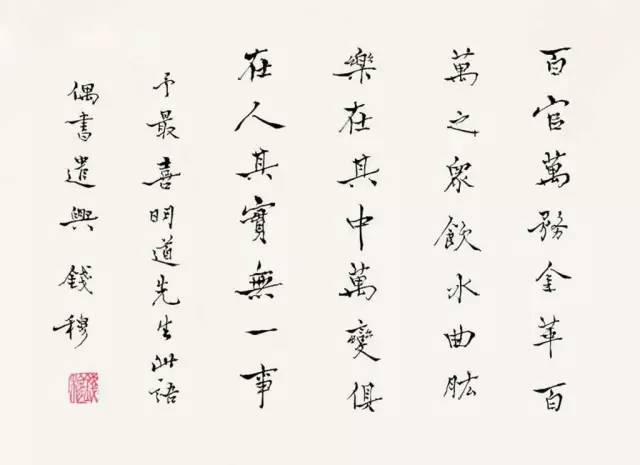 百官萬務金革百
萬之眾飲水曲肱
樂在其中萬變俱
在人其實無一事
予最喜明道先生此語
偶書遣興 錢穆